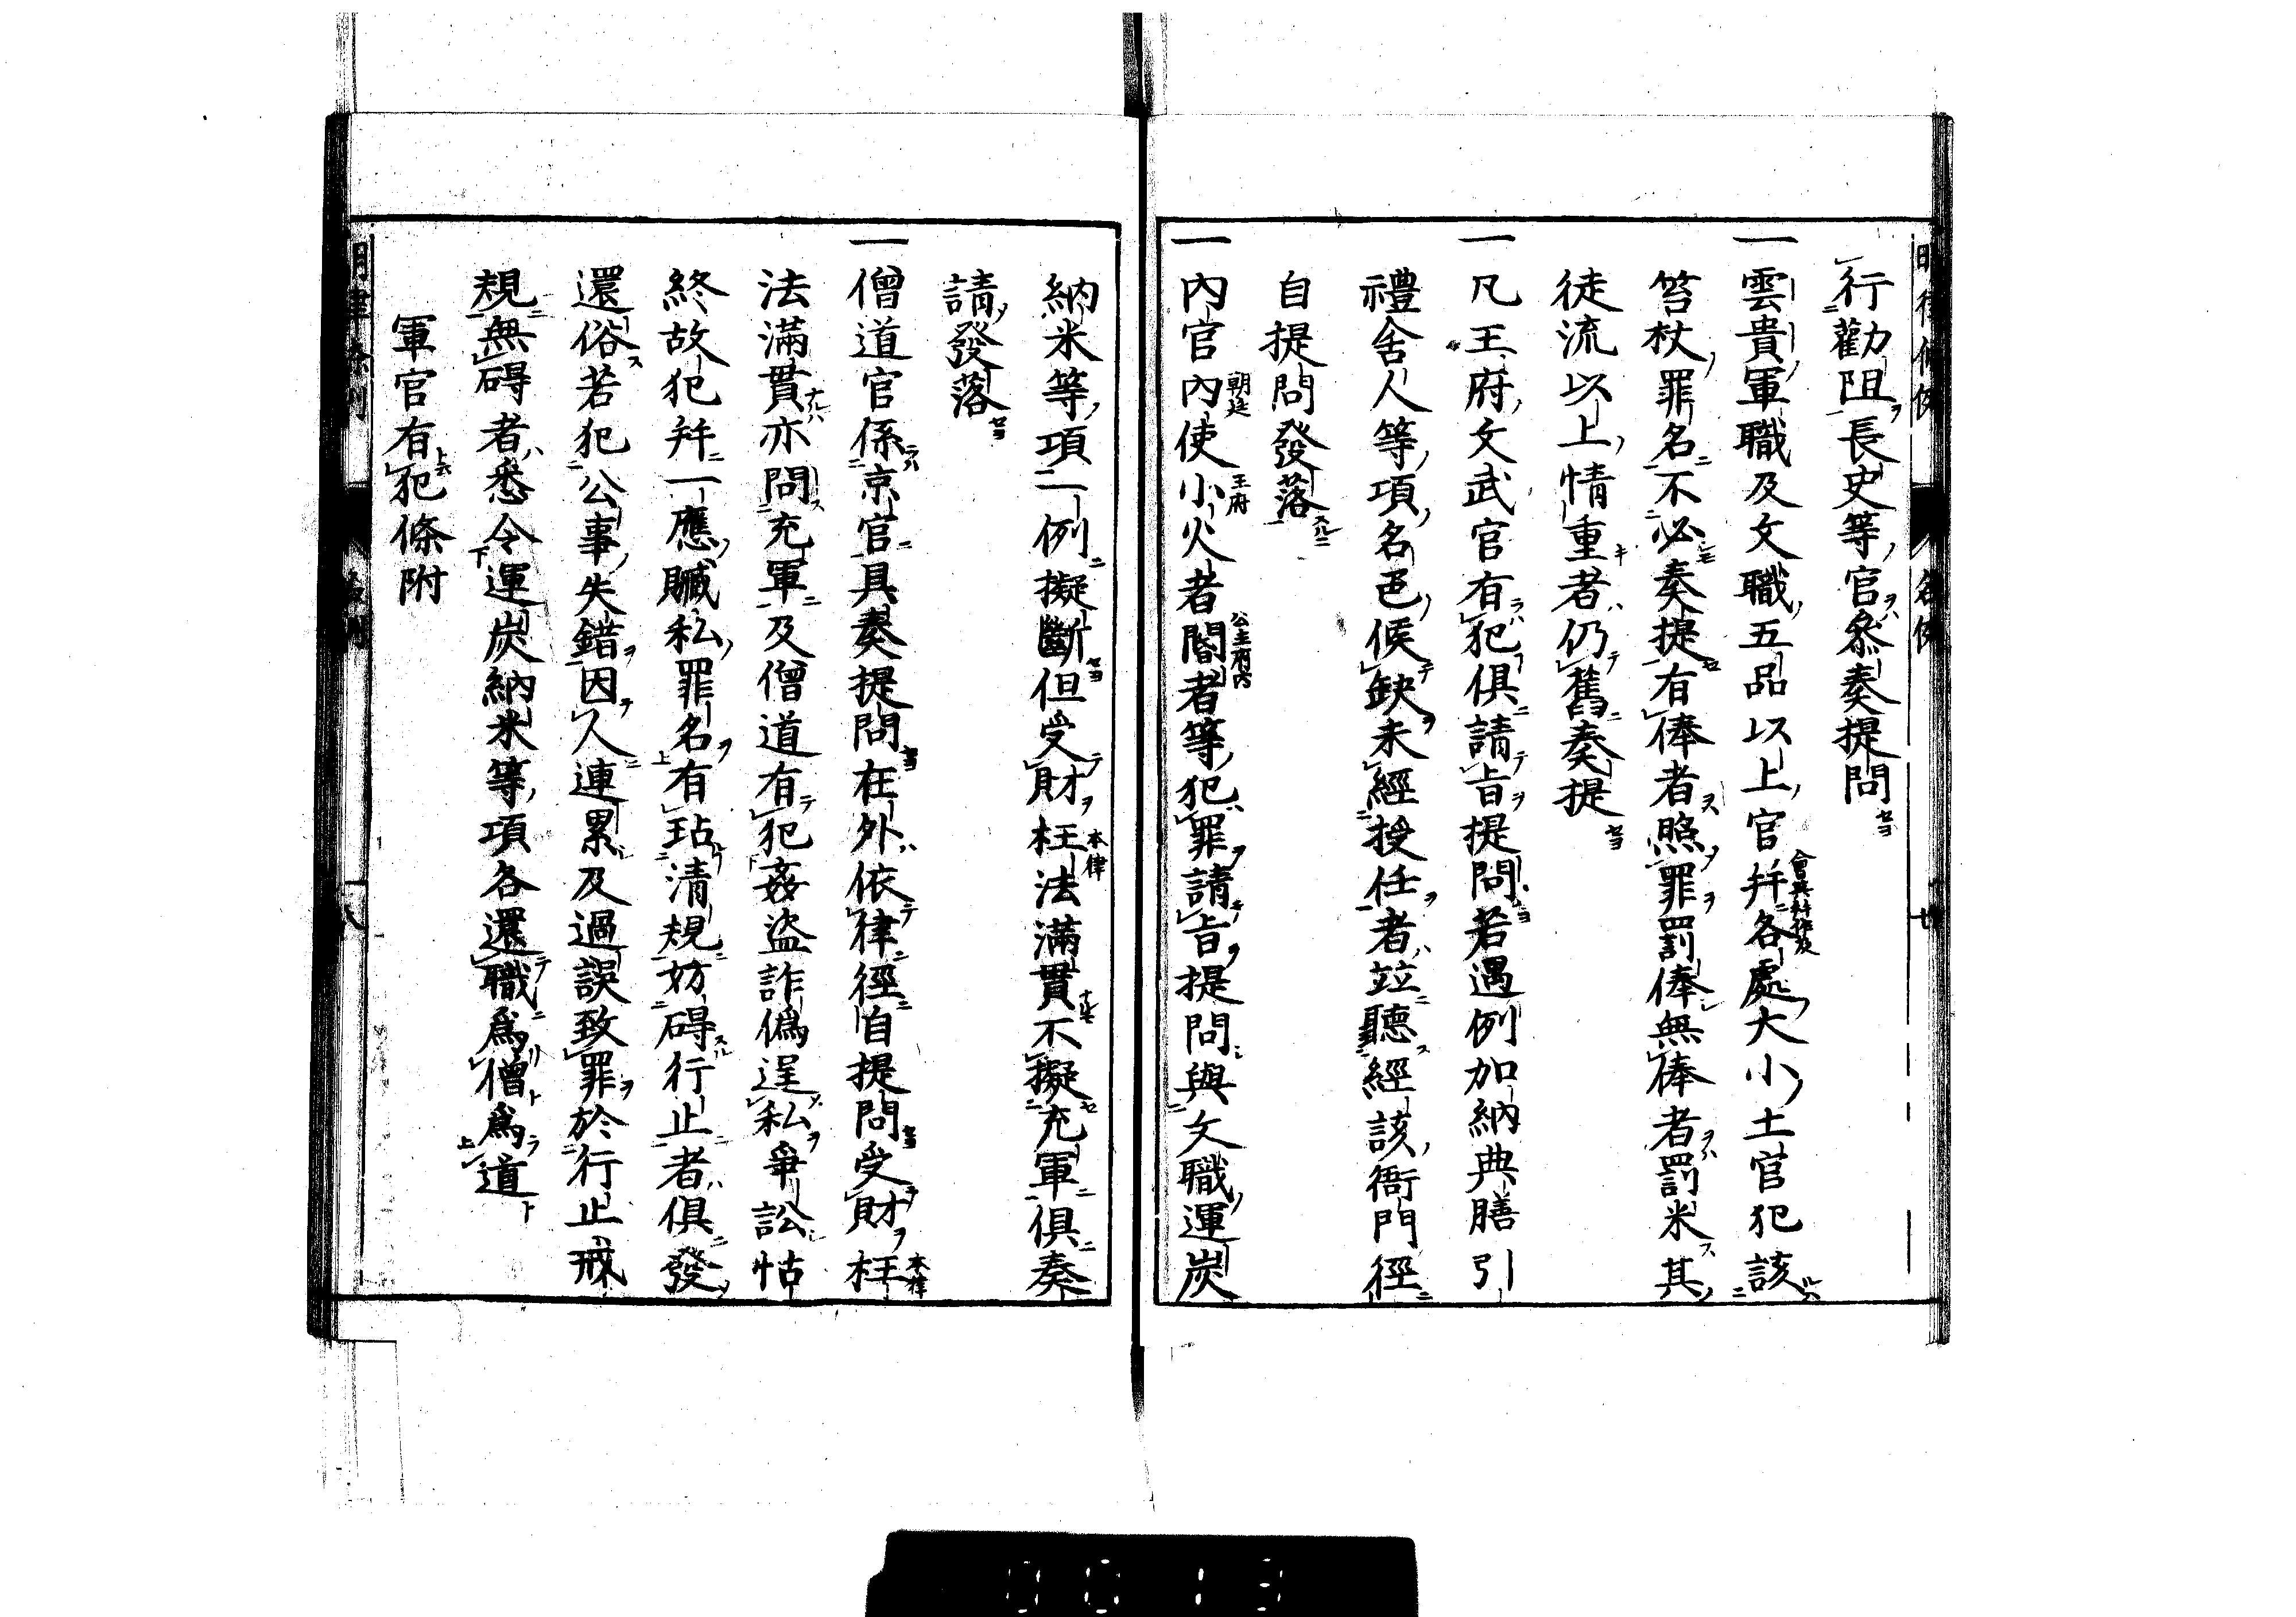 行勸阻長史等官參奏提問
一雲貴軍職及文職五品以上官幷各處大小土官犯該
笞杖罪名不必奏提有俸者照罪罰俸無俸者罰米其
徒流以上情重者仍舊奏提
一凡王府文武官有犯俱請旨提問若遇例加納典膳引
禮舍人等項名色候缺未經授任者竝聽經該衙門徑
自提問發落
一內官內使小火者閽者等犯罪請旨提問與文職運炭
朝廷
王府
公主府內
納米等項一例擬斷但受財枉法滿貫不擬充軍俱奏
本律
請發落
一僧道官係京官具奏提問在外依律徑自提問受財枉
本律
法滿貫亦問充軍及僧道有犯姦盜詐僞逞私爭訟怙
終故犯幷一應贓私罪名有玷清規妨碍行止者俱發
還俗若犯公事失錯因人連累及過誤致罪於行止戒
規無碍者悉令運炭納米等項各還職爲僧爲道
軍官有犯條附
明律條例
十八